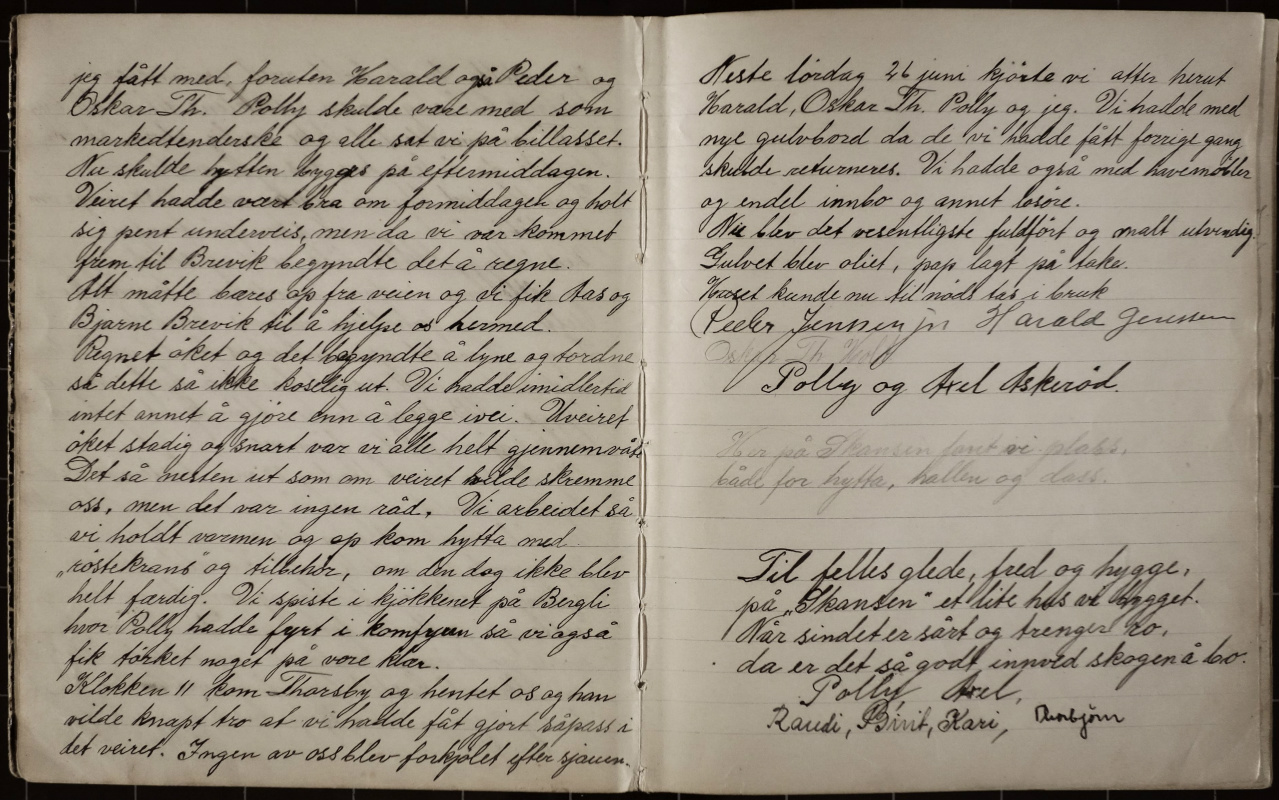 jeg fått med, foruten Harald også Peder og
Oskar Th. Polly skulde være med som
markedtenderske og alle sat vi på billasset.
Nu skulde hytten bygges på eftermiddagen.
Veiret hadde vært bra om formiddagen og holt
sig pent underveis, men da vi var kommet
frem til Brevik begyndte det å regne.
Alt måtte bæres op fra veien og vi fik Aas og
Bjarne Brevik til å hjelpe os hermed.
Regnet øket og det begyndte å lyne og tordne
så dette så ikke koselig ut. Vi hadde imidlertid
intet annet å gjøre enn å legge ivei. Uveiret
øket stadig og snart var vi alle helt gjennemvåt
Det så nesten ut som om veiret vilde skremme
oss, men det var ingen råd. Vi arbeidet så
vi holdt varmen og op kom hytta med
„røstekrans" og tilbehør, om den dog ikke blev
helt færdig. Vi spiste i kjøkkenet på Bergli
hvor Polly hadde fyrt i komfyren så vi også
fik tørket noget på vore klær.
Klokken 11 kom Thorsby og hentet os og han
vilde knapt tro at vi hadde fåt gjort såpass i
det veiret. Ingen av oss blev forkjølet efter sjauen.
Neste lørdag 26 juni kjørte vi atter herut
Harald, Oskar Th. Polly og jeg. Vi hadde med
nye gulvbord da de vi hadde fått forrige gang
skulde returneres. Vi hadde også med havemøbler
og endel innbo og annet løsøre.
Nu blev det vesentligste fuldført og malt utvendig.
Gulvet blev oliet, pap lagt på take.
Huset kunde nu til nøds tas i bruk
Peder Jenssen jr Harald Jenssen
Oskar Th. Holt
Polly og Axel Askerød.
Her på Skansen fant vi plass,
både for hytta, hallen og dass.
Til felles glede, fred og hygge,
på „Skansen" et lite hus vi bygget.
Når sindet er sårt og trenger ro,
da er det så godt, innved skogen å bo.
Polly, Axel,
Randi, Berit, Kari, Thorbjørn